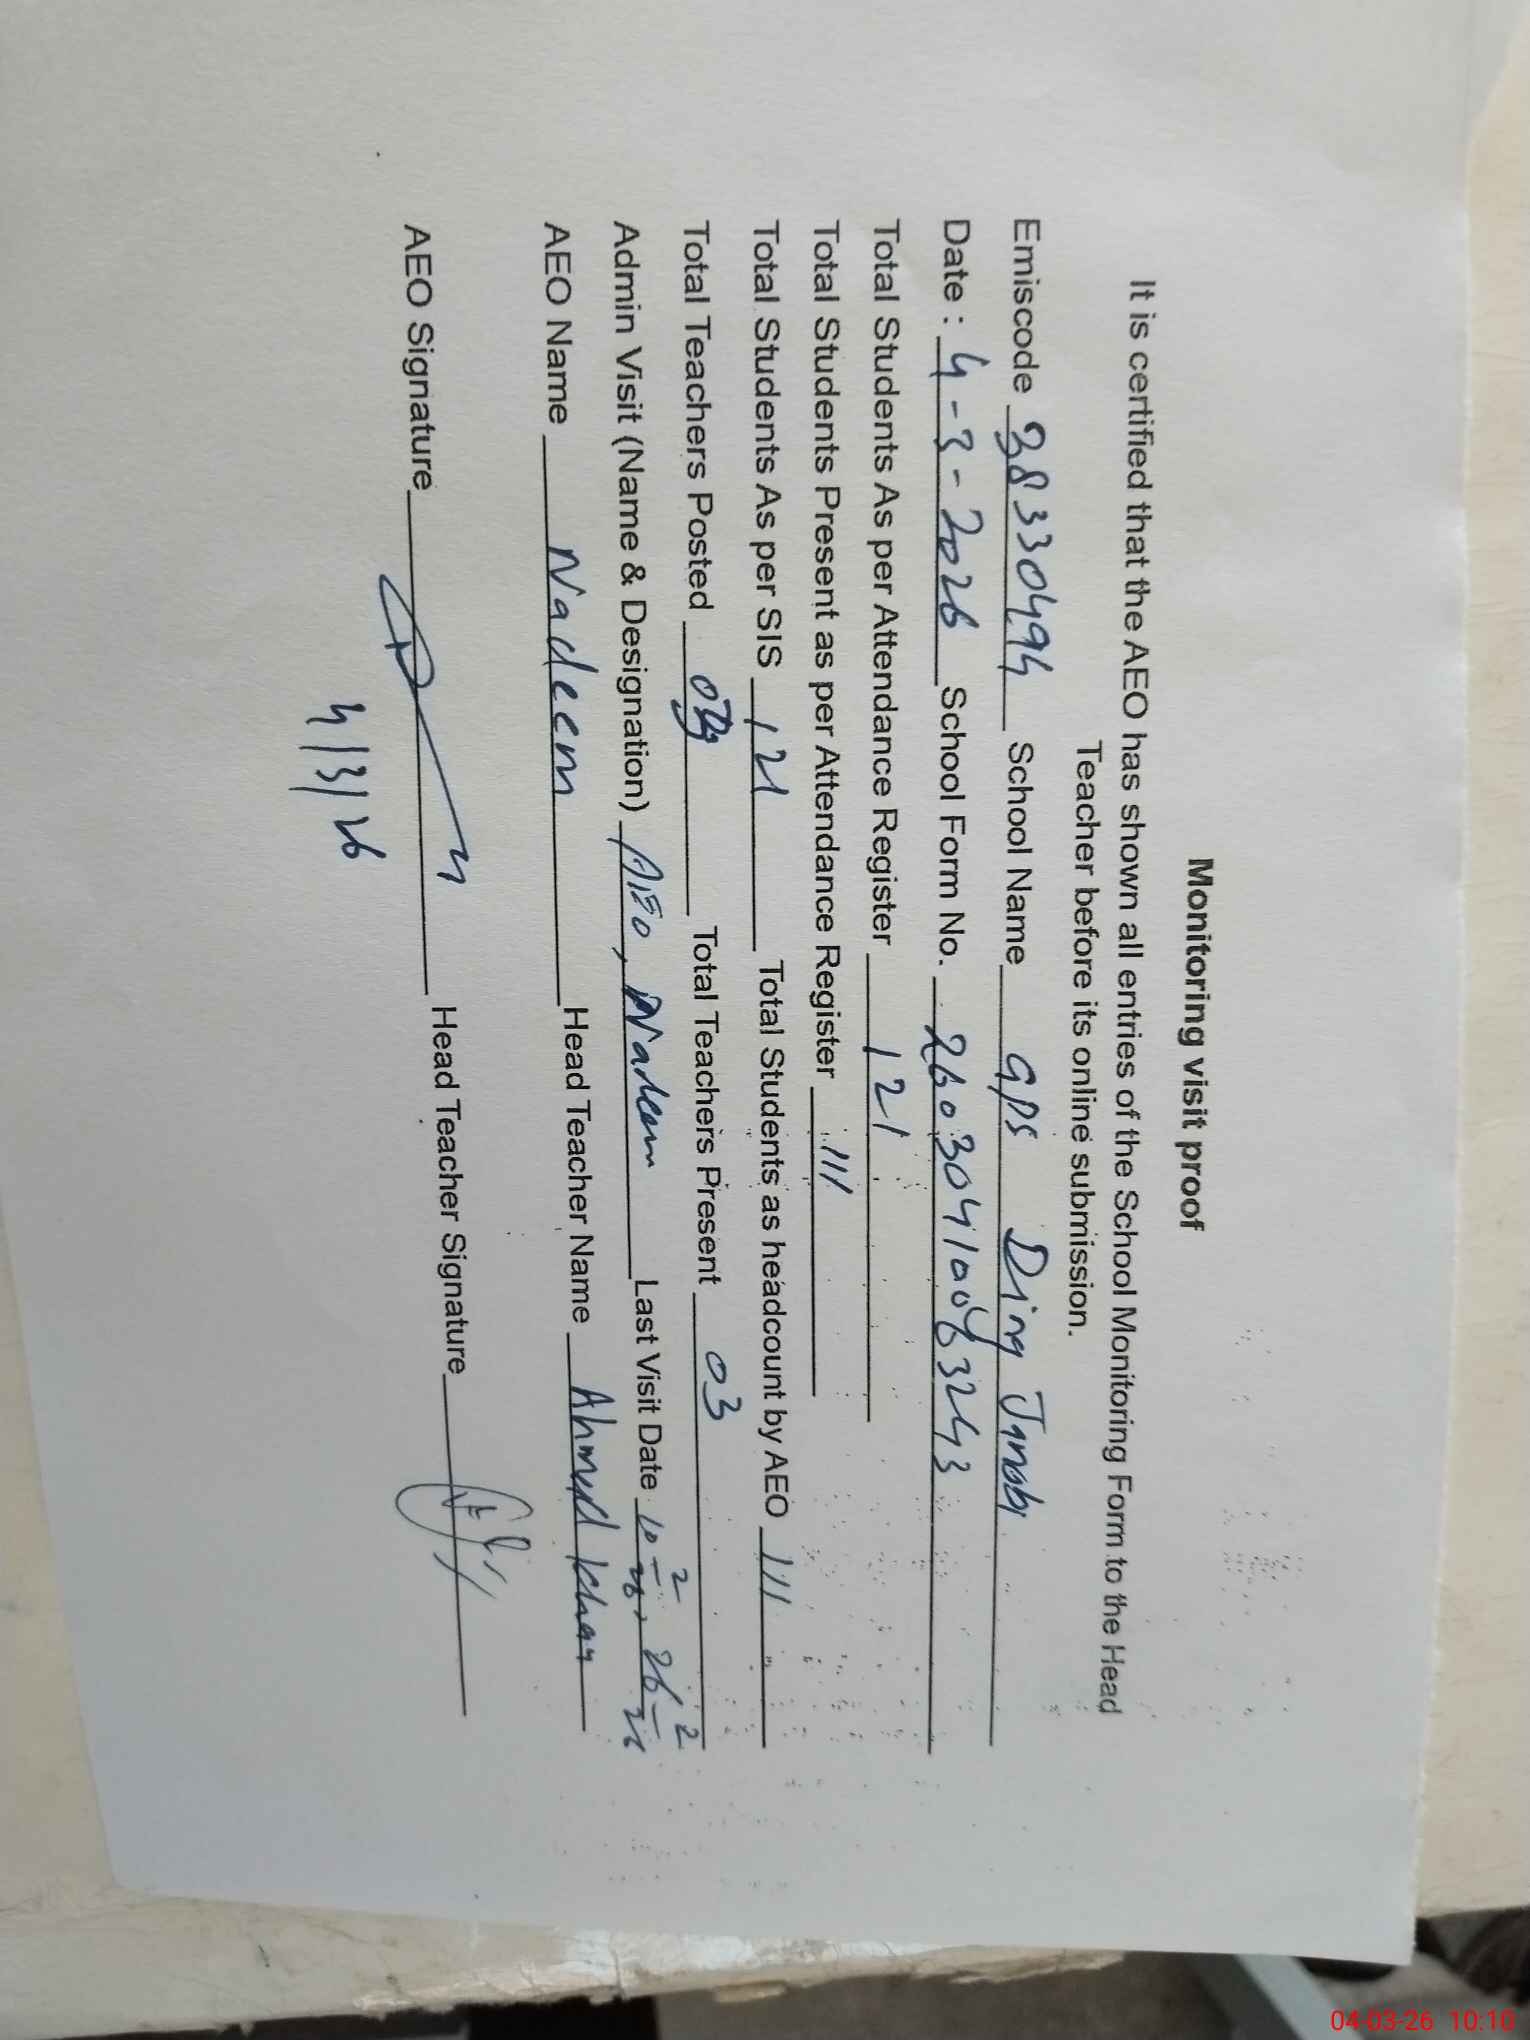 Monitoring visit proof
It is certified that the AEO has shown all entries of the School Monitoring Form to the Head
Teacher before its online submission.
Emiscode 38330494 School Name GPS Ding Janobi
Date : 4-3-2026 School Form No. 26030410063243
Total Students As per Attendance Register 121
Total Students Present as per Attendance Register 111
Total Students As per SIS 121 Total Students as headcount by AEO 111
Total Teachers Posted 03 Total Teachers Present 03
Admin Visit (Name & Designation) AEO, Nadeem Last Visit Date 10-2-26, 26-2-26
AEO Name Nadeem Head Teacher Name Ahmed Khan
AEO Signature Head Teacher Signature
4/3/26
04-03-26 10:10